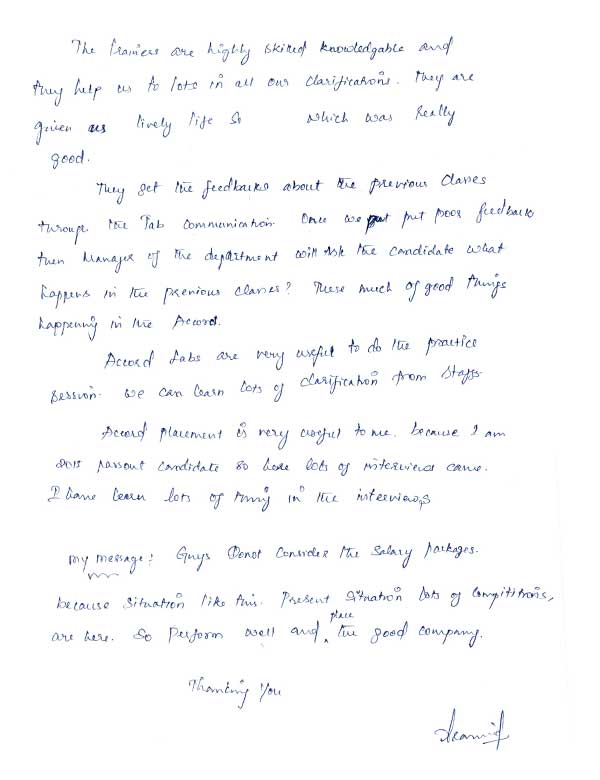 The trainers are highly skilled knowledgable and
they help us to lots in all our clarifications. they are
given us lively life so which was really
good.
They get the feedbacks about the previous classes
through the Tab communication. Once we put put poor feedback
then Manager of the department will ask the candidate what
happens in the previous classes? These much of good things
happening in the Accord.
Accord Labs are very useful to do the practice
session. we can learn lots of clarification from staffs.
Accord placement is very useful to me. because I am
2015 passout candidate so here lots of interviews came.
I have learn lots of thing in the interviews
my message: Guys Donot consider the salary packages.
because situation like this. Present situation lots of compititions,
are here. So perform well and place the good company.
Thanking You